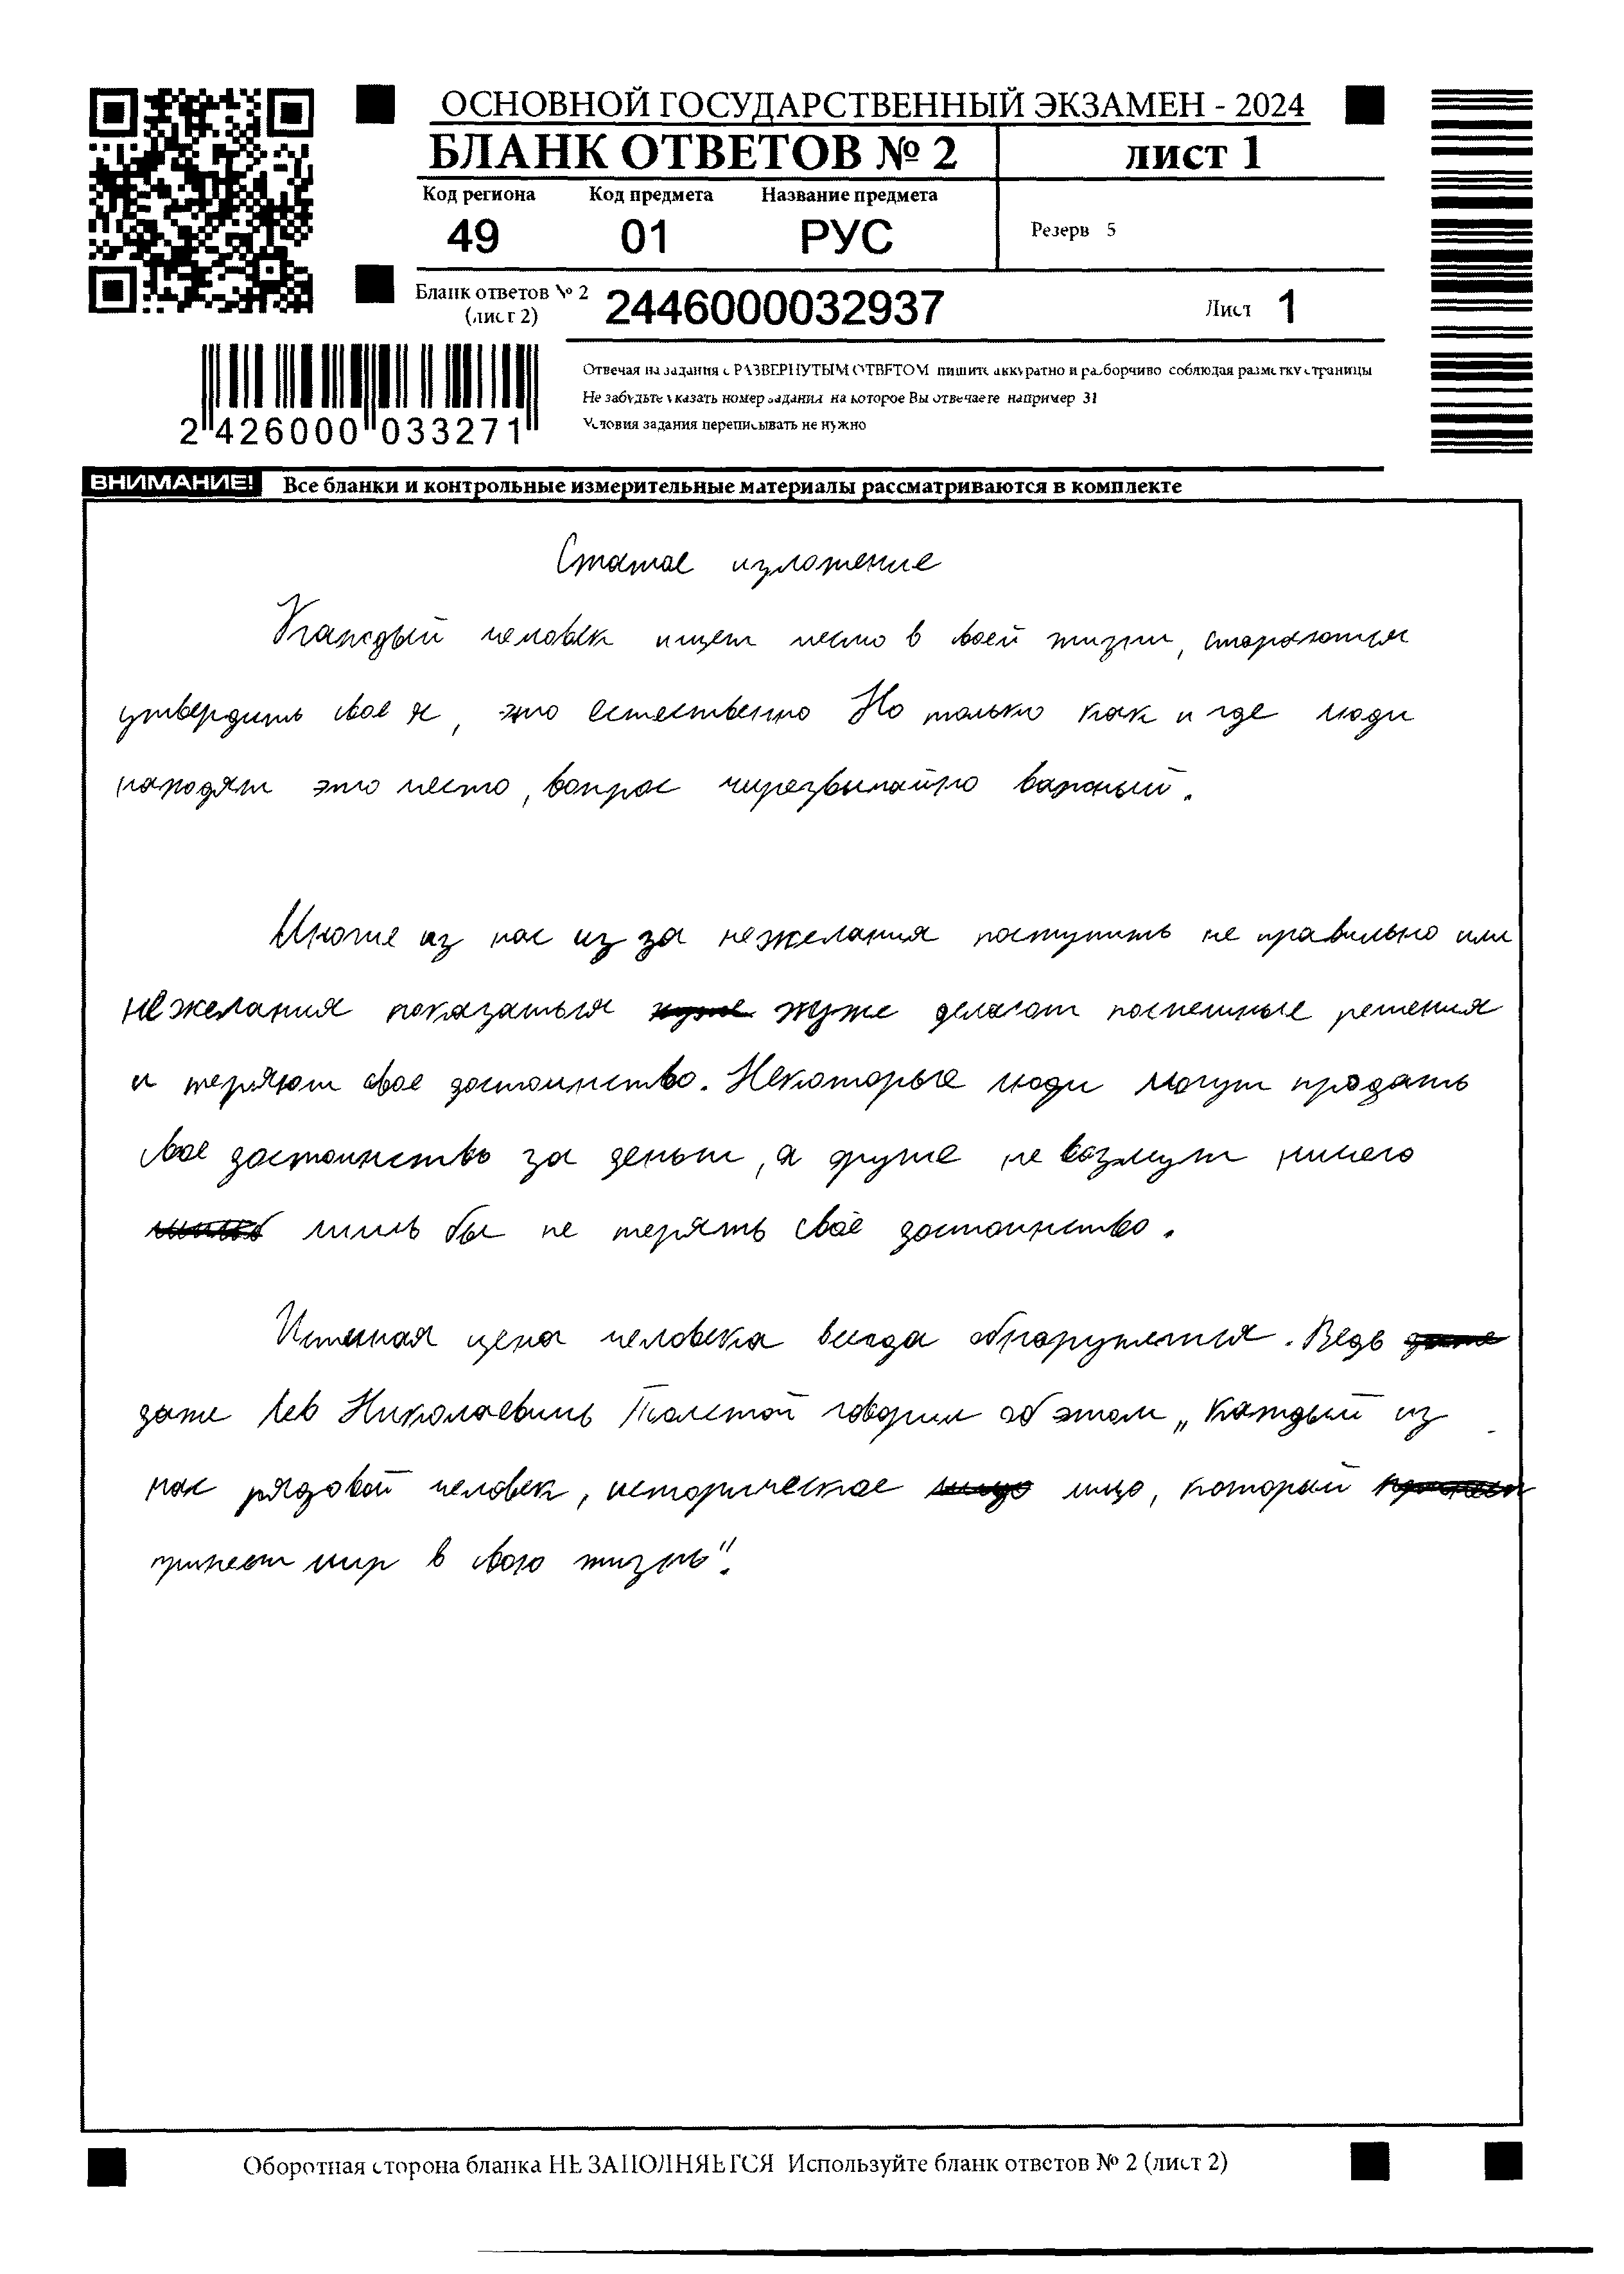 ОСНОВНОЙ ГОСУДАРСТВЕННЫЙ ЭКЗАМЕН - 2024
БЛАНК ОТВЕТОВ № 2
ЛИСТ 1
Код региона Код предмета Название предмета
49 01 РУС
Резерв 5
Бланк ответов № 2
(лист 2)
2446000032937
Лист 1
Отвечая на задания с РАЗВЕРНУТЫМ ОТВЕТОМ пишите аккуратно и разборчиво соблюдая разметку страницы
Не забудьте указать номер задания на которое Вы отвечаете например 31
Условия задания переписывать не нужно
2 426000 033271
ВНИМАНИЕ! Все бланки и контрольные измерительные материалы рассматриваются в комплекте
Сжатое изложение
Каждый человек ищет место в своей жизни, стараются
утвердить свое я, это естественно Но только как и где люди
находят это место, вопрос чирезвычайно важный.
Многие из нас из за нежелания поступить не правильно или
нежелания показаться хуже делают поспешные решения
и теряют свое достоинство. Некоторые люди могут продать
свое достоинство за деньги, а другие не возмут ничего
лишь бы не терять своё достоинство.
Истенная цена человека всегда обнаружется. Ведь
даже Лев Николаевичь Толстой говорил об этом „Каждый из
нас рядовой человек, историческое лицо, который
принест мир в свою жизнь".
Оборотная сторона бланка НЕ ЗАПОЛНЯЕТСЯ Используйте бланк ответов № 2 (лист 2)